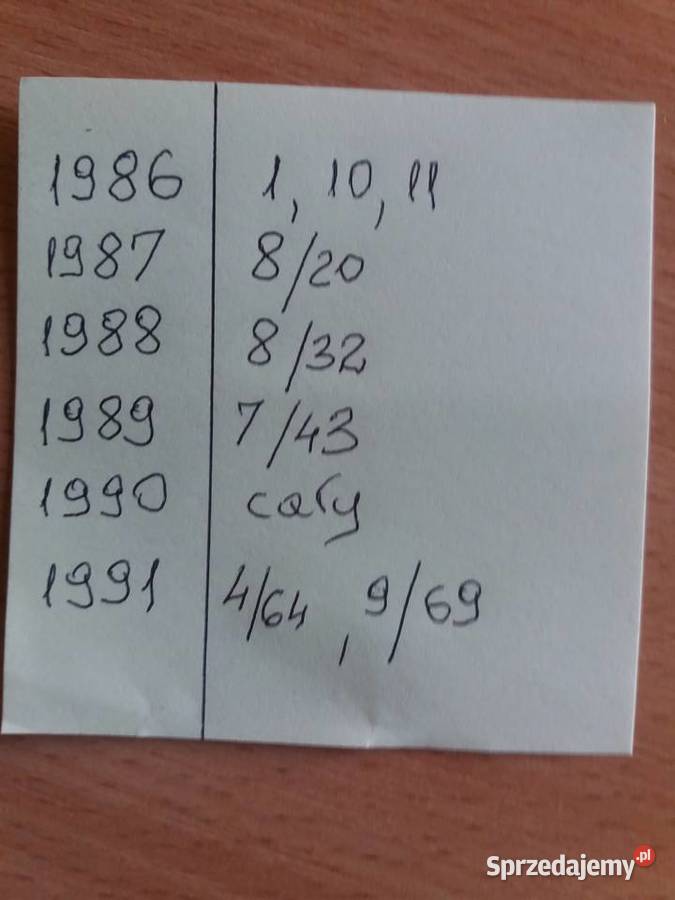 1986 1, 10, 11
1987 8/20
1988 8/32
1989 7/43
1990 cały
1991 4/64, 9/69
Sprzedajemy.pl